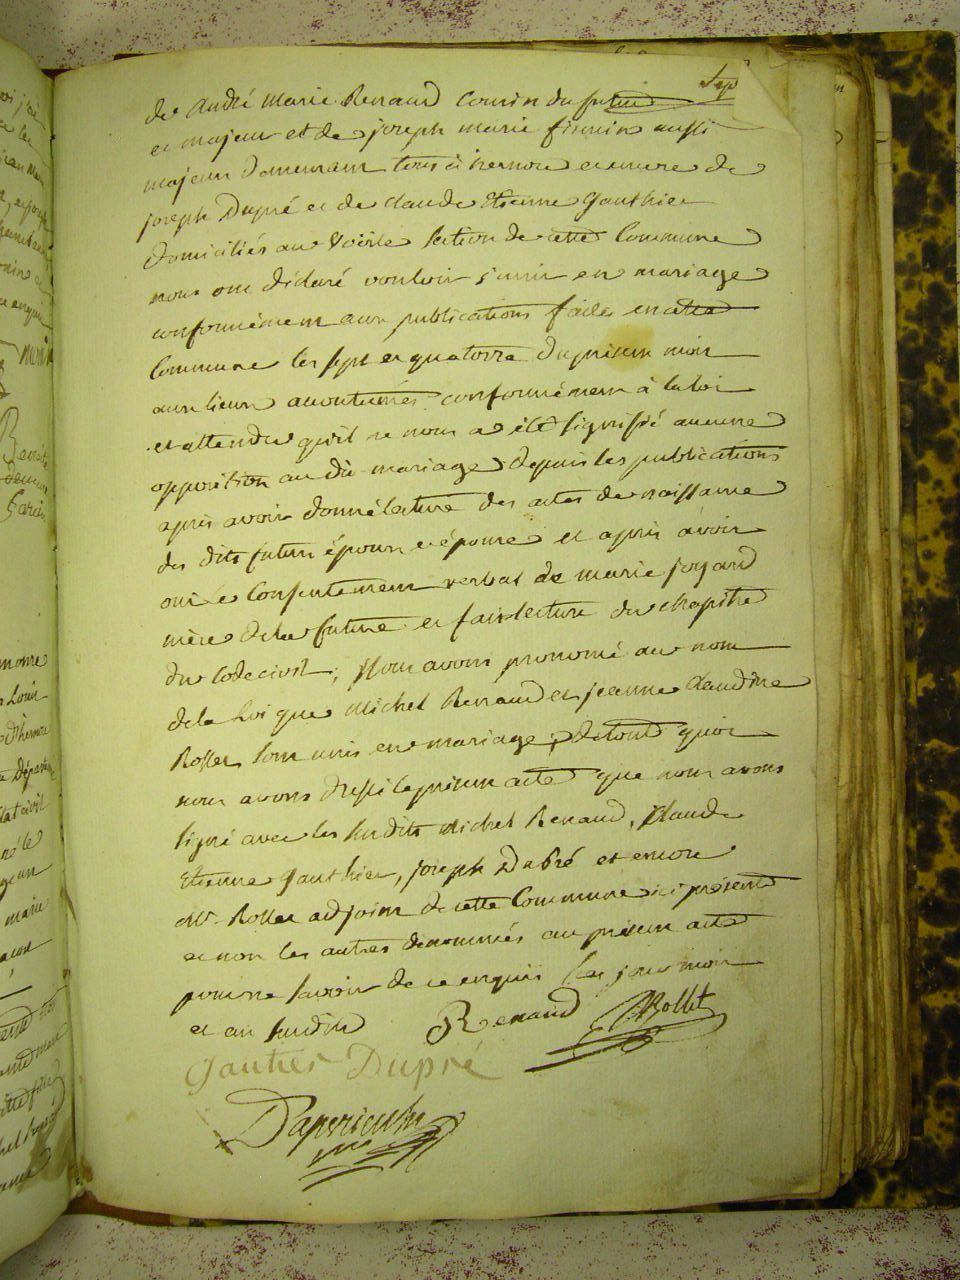 Sept
de André Marie Renaud Cousin du futur
et majeur et de joseph marie firmin aussi
majeur demeurant tous à hernore et encore de
joseph Dupré et de claude Etienne Gauthier
domiciliés au Voisle section de cette Commune
nous ont déclaré vouloir s'unir en mariage
conformément aux publications faites en cette
Commune les sept et quatorze du présent mois
aux lieux accoutumés conformément à la loi
et attendu qu'il ne nous a été signifié aucune
opposition au dit mariage depuis les publications
après avoir donné lecture des actes de naissance
des dits futurs époux et épouse et après avoir
oui le Consentement verbal de marie joyard
mère de la future et fait lecture du chapitre
du Code civil, Nous avons prononcé au nom
de la Loi que Michel Renaud et jeanne claudine
Rollet sont unis en mariage; de tout quoi
nous avons dressé le présent acte que nous avons
signé avec les susdits Michel Renaud, Claude
Etienne Gauthier, joseph Dupré et encore
Mr Rollet adjoint de cette Commune ici présent
et non les autres dénommés au présent acte
pour ne savoir de ce enquis les jour mois
et an susdits Renaud Rollet
Gautier Dupré